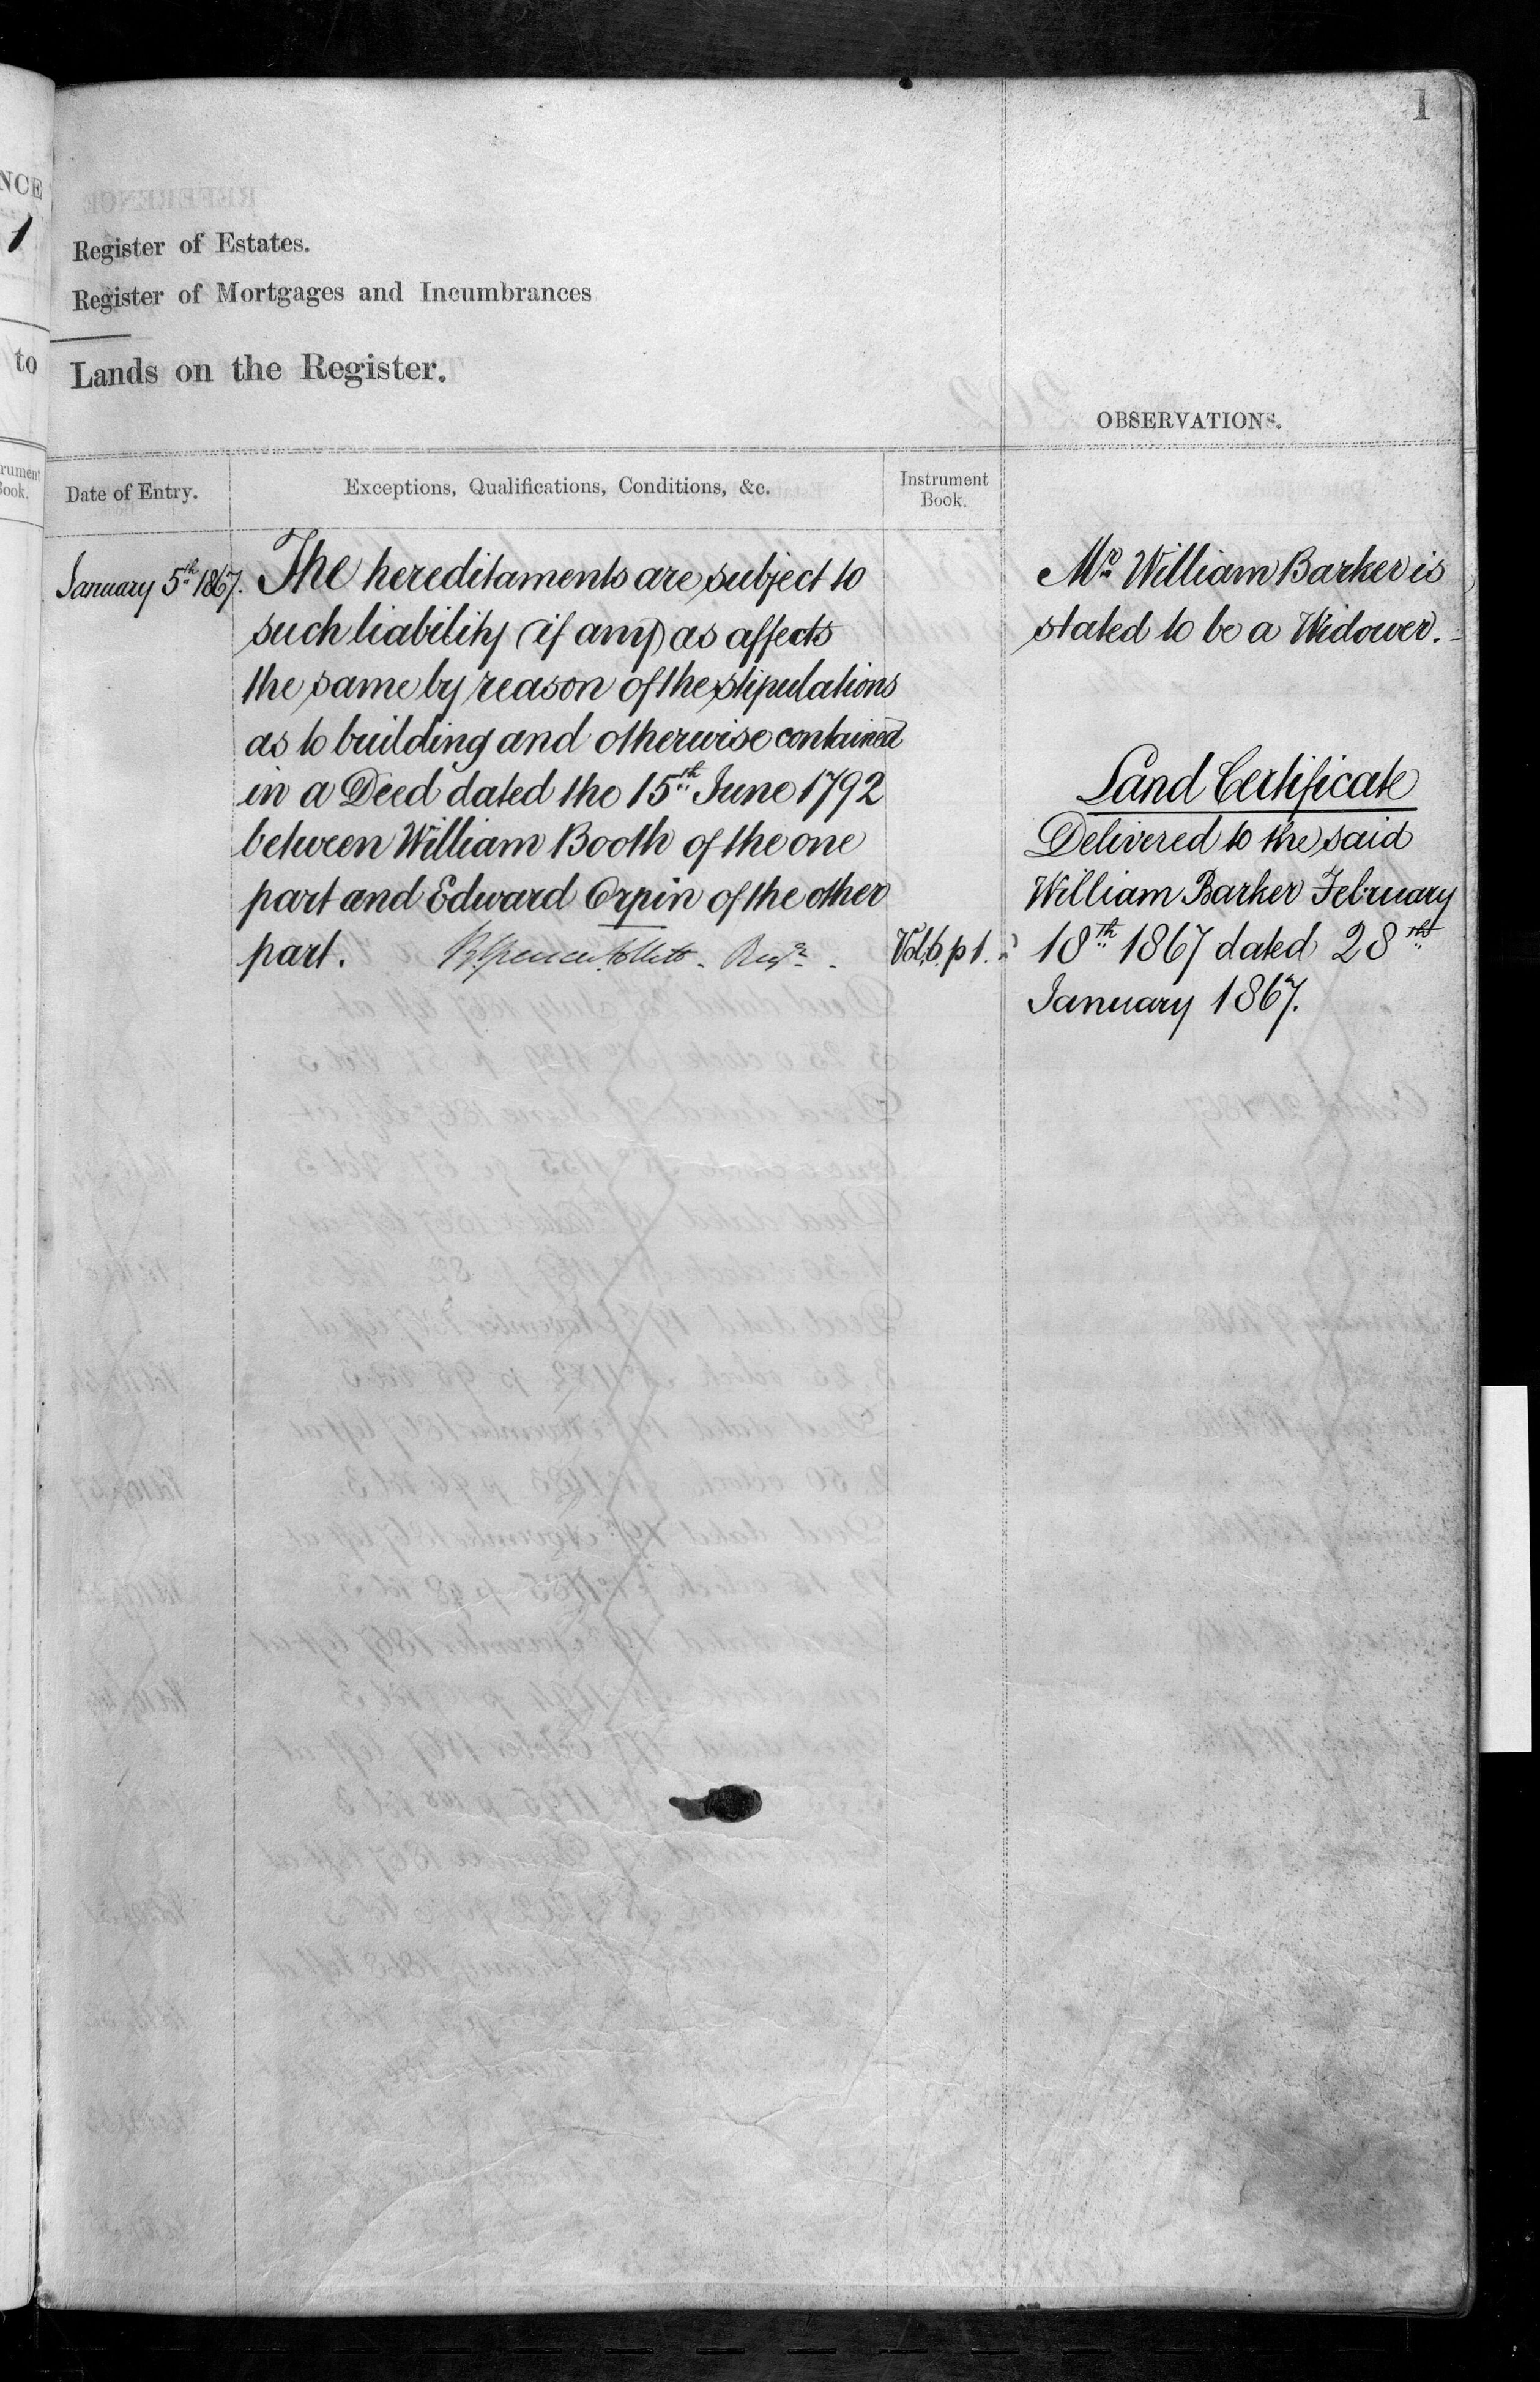 1
NCE
1
Register of Estates.
Register of Mortgages and Incumbrances
to
Lands on the Register.
OBSERVATIONS.
rument
Book.
Date of Entry.
Exceptions, Qualifications, Conditions, &c.
Instrument
Book.
January 5th 1867.
The hereditaments are subject to
such liability (if any) as affects
the same by reason of the stipulations
as to building and otherwise contained
in a Deed dated the 15th June 1792
between William Booth of the one
part and Edward Orpin of the other
part.
Regr.
Vol. 6. p 1.
Mr. William Barker is
stated to be a Widower.
Land Certificate
Delivered to the said
William Barker February
18th 1867 dated 28th
January 1867.